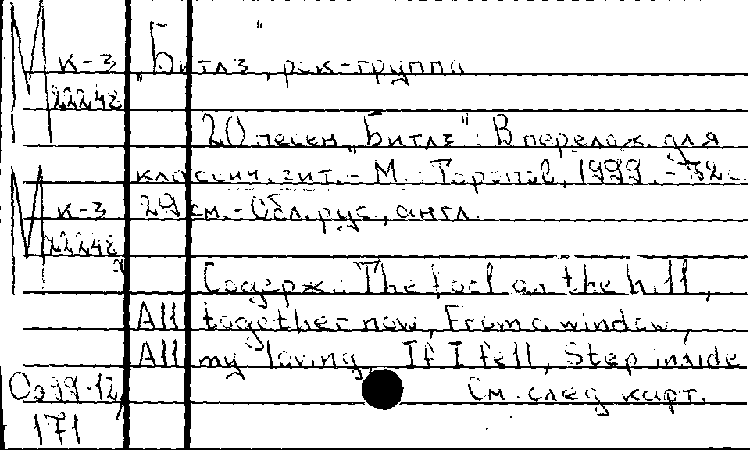 М к-3 „Битлз", рок-группа
22242
20 песен „Битлз": В перелож. для
классич. гит. - М.: Торопов, 1999. - 32 с.
М к-3 29 см. - Обл. рус., англ.
22242
Содерж.: The fool on the hill,
All together now, From a window,
All my loving, If I fell, Step inside
Оо 99-12/ См. след. карт.
171